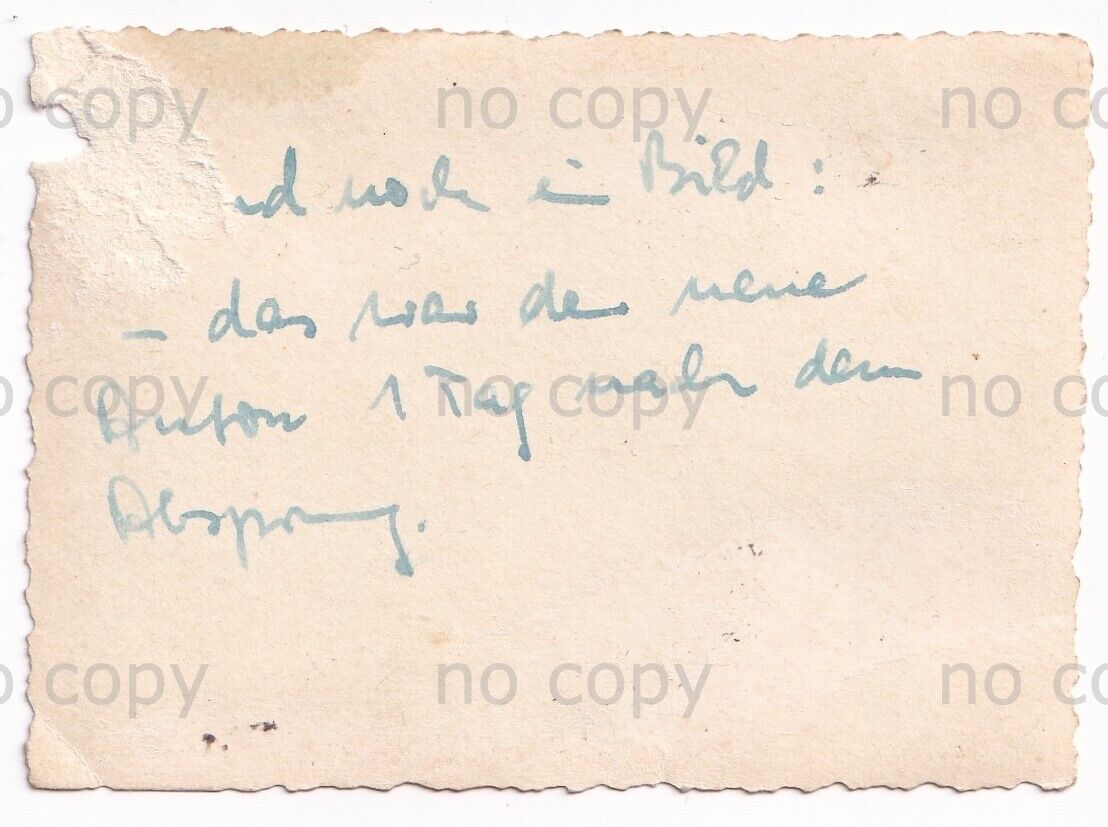 o copy no copy no co
nd noch ein Bild:
– das war der neue
Anton 1 Tag nach dem
o copy no copy no co
Absprung.
o copy no copy no co